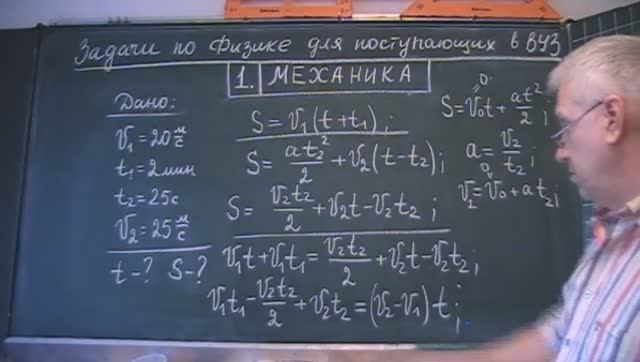 Задачи по Физике для поступающих в ВУЗ
1. МЕХАНИКА
Дано:
V₁ = 20 м/с
t₁ = 2 мин
t₂ = 25 с
V₂ = 25 м/с
t - ? S - ?
S = V₁(t + t₁);
S = at₂²/2 + V₂(t - t₂);
S = V₂t₂/2 + V₂t - V₂t₂;
V₁t + V₁t₁ = V₂t₂/2 + V₂t - V₂t₂;
V₁t₁ - V₂t₂/2 + V₂t₂ = (V₂ - V₁)t;
0
S = V₀t + at²/2;
a = V₂/t₂;
0
V₂ = V₀ + at₂;